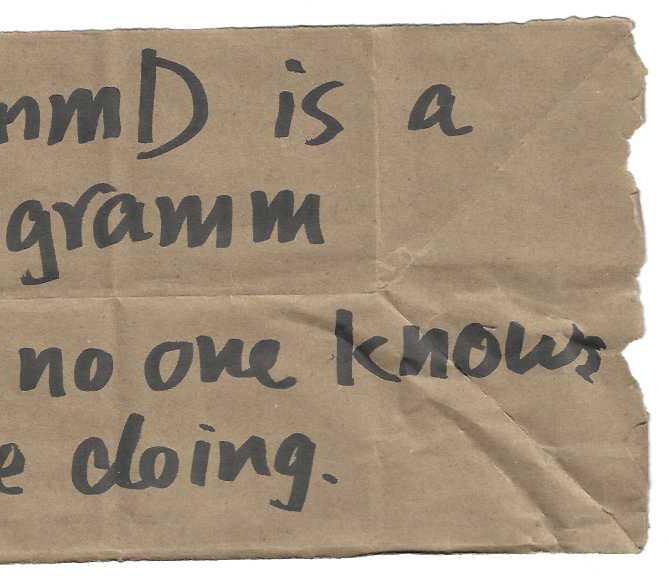 nmD is a
gramm
no one knows
e doing.